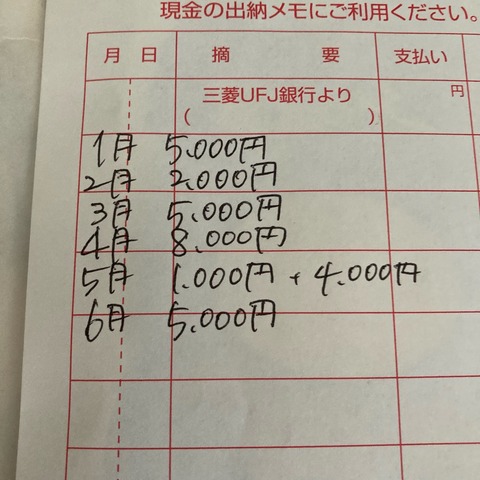 現金の出納メモにご利用ください。
月 日 摘 要 支払い
円
三菱UFJ銀行より
( )
1月 5.000円
2月 2.000円
3月 5.000円
4月 8.000円
5月 1.000円 + 4.000円
6月 5.000円